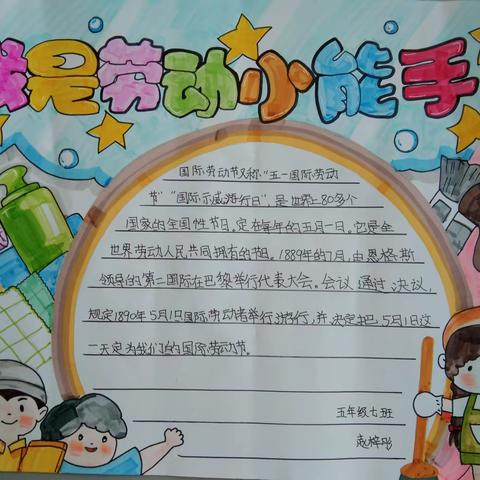 我是劳动小能手
国际劳动节又称“五一国际劳动
节”“国际示威游行日”,是世界上80多个
国家的全国性节日。定在每年的五月一日。它是全
世界劳动人民共同拥有的节日。1889年的7月,由恩格斯
领导的第二国际在巴黎举行代表大会。会议通过决议,
规定1890年5月1日国际劳动者举行游行,并决定把5月1日这
一天定为我们的国际劳动节。
五年级七班
赵梓彤